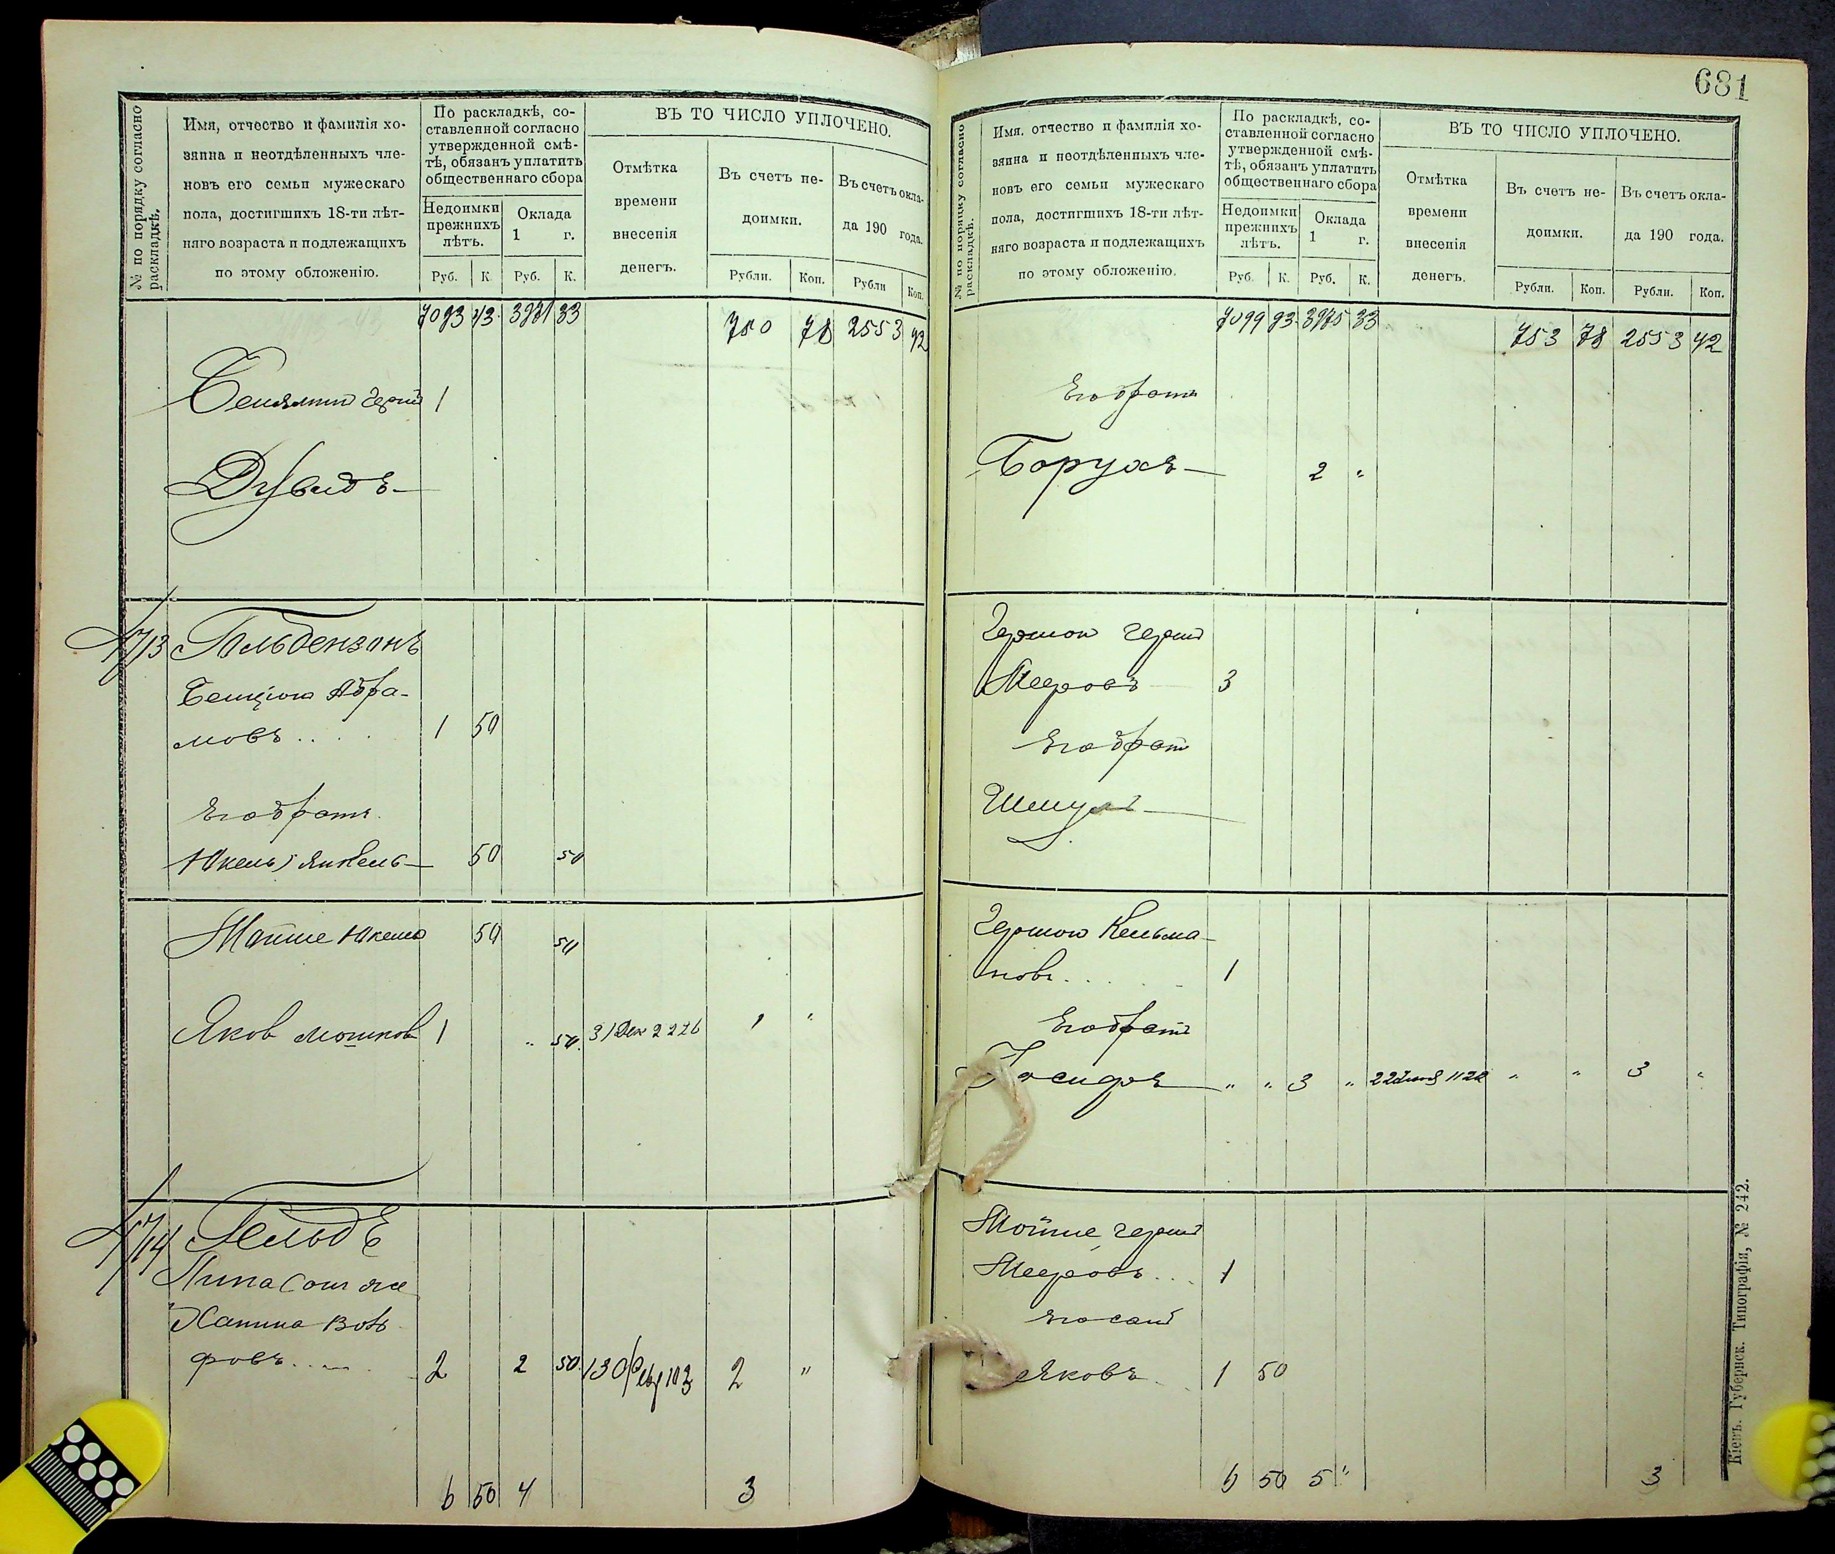 681
№ по порядку согласно раскладкѣ.
Имя, отчество и фамилія хо-
зяина и неотдѣленныхъ чле-
новъ его семьи мужескаго
пола, достигшихъ 18-ти лѣт-
няго возраста и подлежащихъ
по этому обложенію.
По раскладкѣ, со-
ставленной согласно
утвержденной смѣ-
тѣ, обязанъ уплатить
общественнаго сбора
Недоимки
прежнихъ
лѣтъ.
Оклада
1 г.
Руб. К. Руб. К.
ВЪ ТО ЧИСЛО УПЛОЧЕНО.
Отмѣтка
времени
внесенія
денегъ.
Въ счетъ не-
доимки.
Въ счетъ окла-
да 190 года.
Рубли. Коп. Рубли Коп.
7093 43 3971 33 750 78 2553 42
1
Дувидъ
4713 Гольдензонъ
Бенціонъ Абра-
мовъ 1 50
Его братъ
Юкель Янкель 50 50
Мойше Юкелев 50 50
Яков Мошков 1 " 50 31 Дек 2226 1 "
4714 Гельдъ
Ханина Воль
фовъ 2 2 50 2 "
6 50 4 3
№ по порядку согласно раскладкѣ.
Имя, отчество и фамилія хо-
зяина и неотдѣленныхъ чле-
новъ его семьи мужескаго
пола, достигшихъ 18-ти лѣт-
няго возраста и подлежащихъ
по этому обложенію.
По раскладкѣ, со-
ставленной согласно
утвержденной смѣ-
тѣ, обязанъ уплатить
общественнаго сбора
Недоимки
прежнихъ
лѣтъ.
Оклада
1 г.
Руб. К. Руб. К.
ВЪ ТО ЧИСЛО УПЛОЧЕНО.
Отмѣтка
времени
внесенія
денегъ.
Въ счетъ не-
доимки.
Въ счетъ окла-
да 190 года.
Рубли. Коп. Рубли. Коп.
7099 93 3975 33 753 78 2553 42
Его братъ
Борухъ 2 "
Гершон Герш
Мееровъ 3
Его брат
Шмуль
Гершон Кельма-
новъ 1
Его братъ
" " 3 " " " 3 "
Мойше Герш
Мееровъ 1
его сын
Яковъ 1 50
6 50 5 " 3
Кіевъ. Губернск. Типографія, № 242.